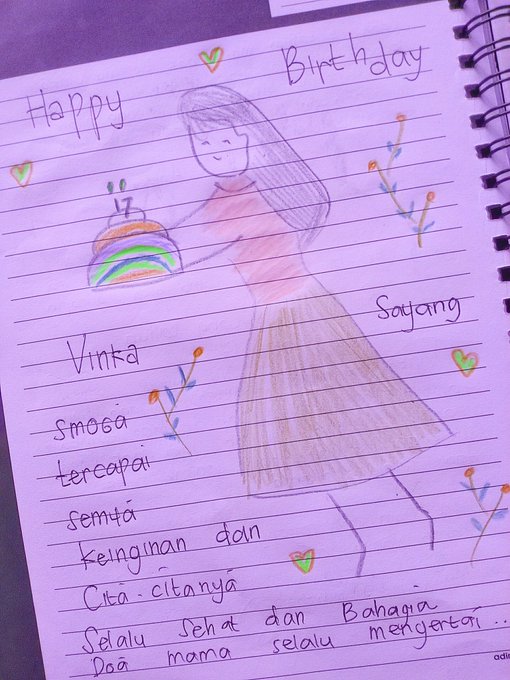 Happy Birthday
17
Sayang
Vinka
smoga
tercapai
semua
keinginan dan
Cita-citanya
Selalu Sehat dan Bahagia
Doa mama selalu mengertai..